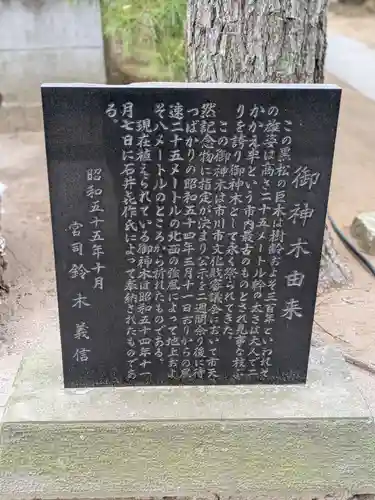 御神木由来
この黒松の巨木は樹齢およそ三百年といわれそ
の雄姿は高さ二十五メートル幹の太さは大人で二
かかえ半という市内最古のものとされ見事な枝ぶ
りを誇り御神木として永く祭られてきた。
この御神木は市川市文化財審議会において市天
然記念物に指定が決まり公示を二週間余り後に待
つばかりの昭和五十四年三月三十一日おりからの風
速二十五メートルの北西の強風によって地上およ
そ八メートルのところから折れたものである。
現在植えられている御神木は昭和五十四年十一
月七日に石井㐂作氏によって奉納されたものであ
る
昭和五十五年十月
宮司 鈴木義信